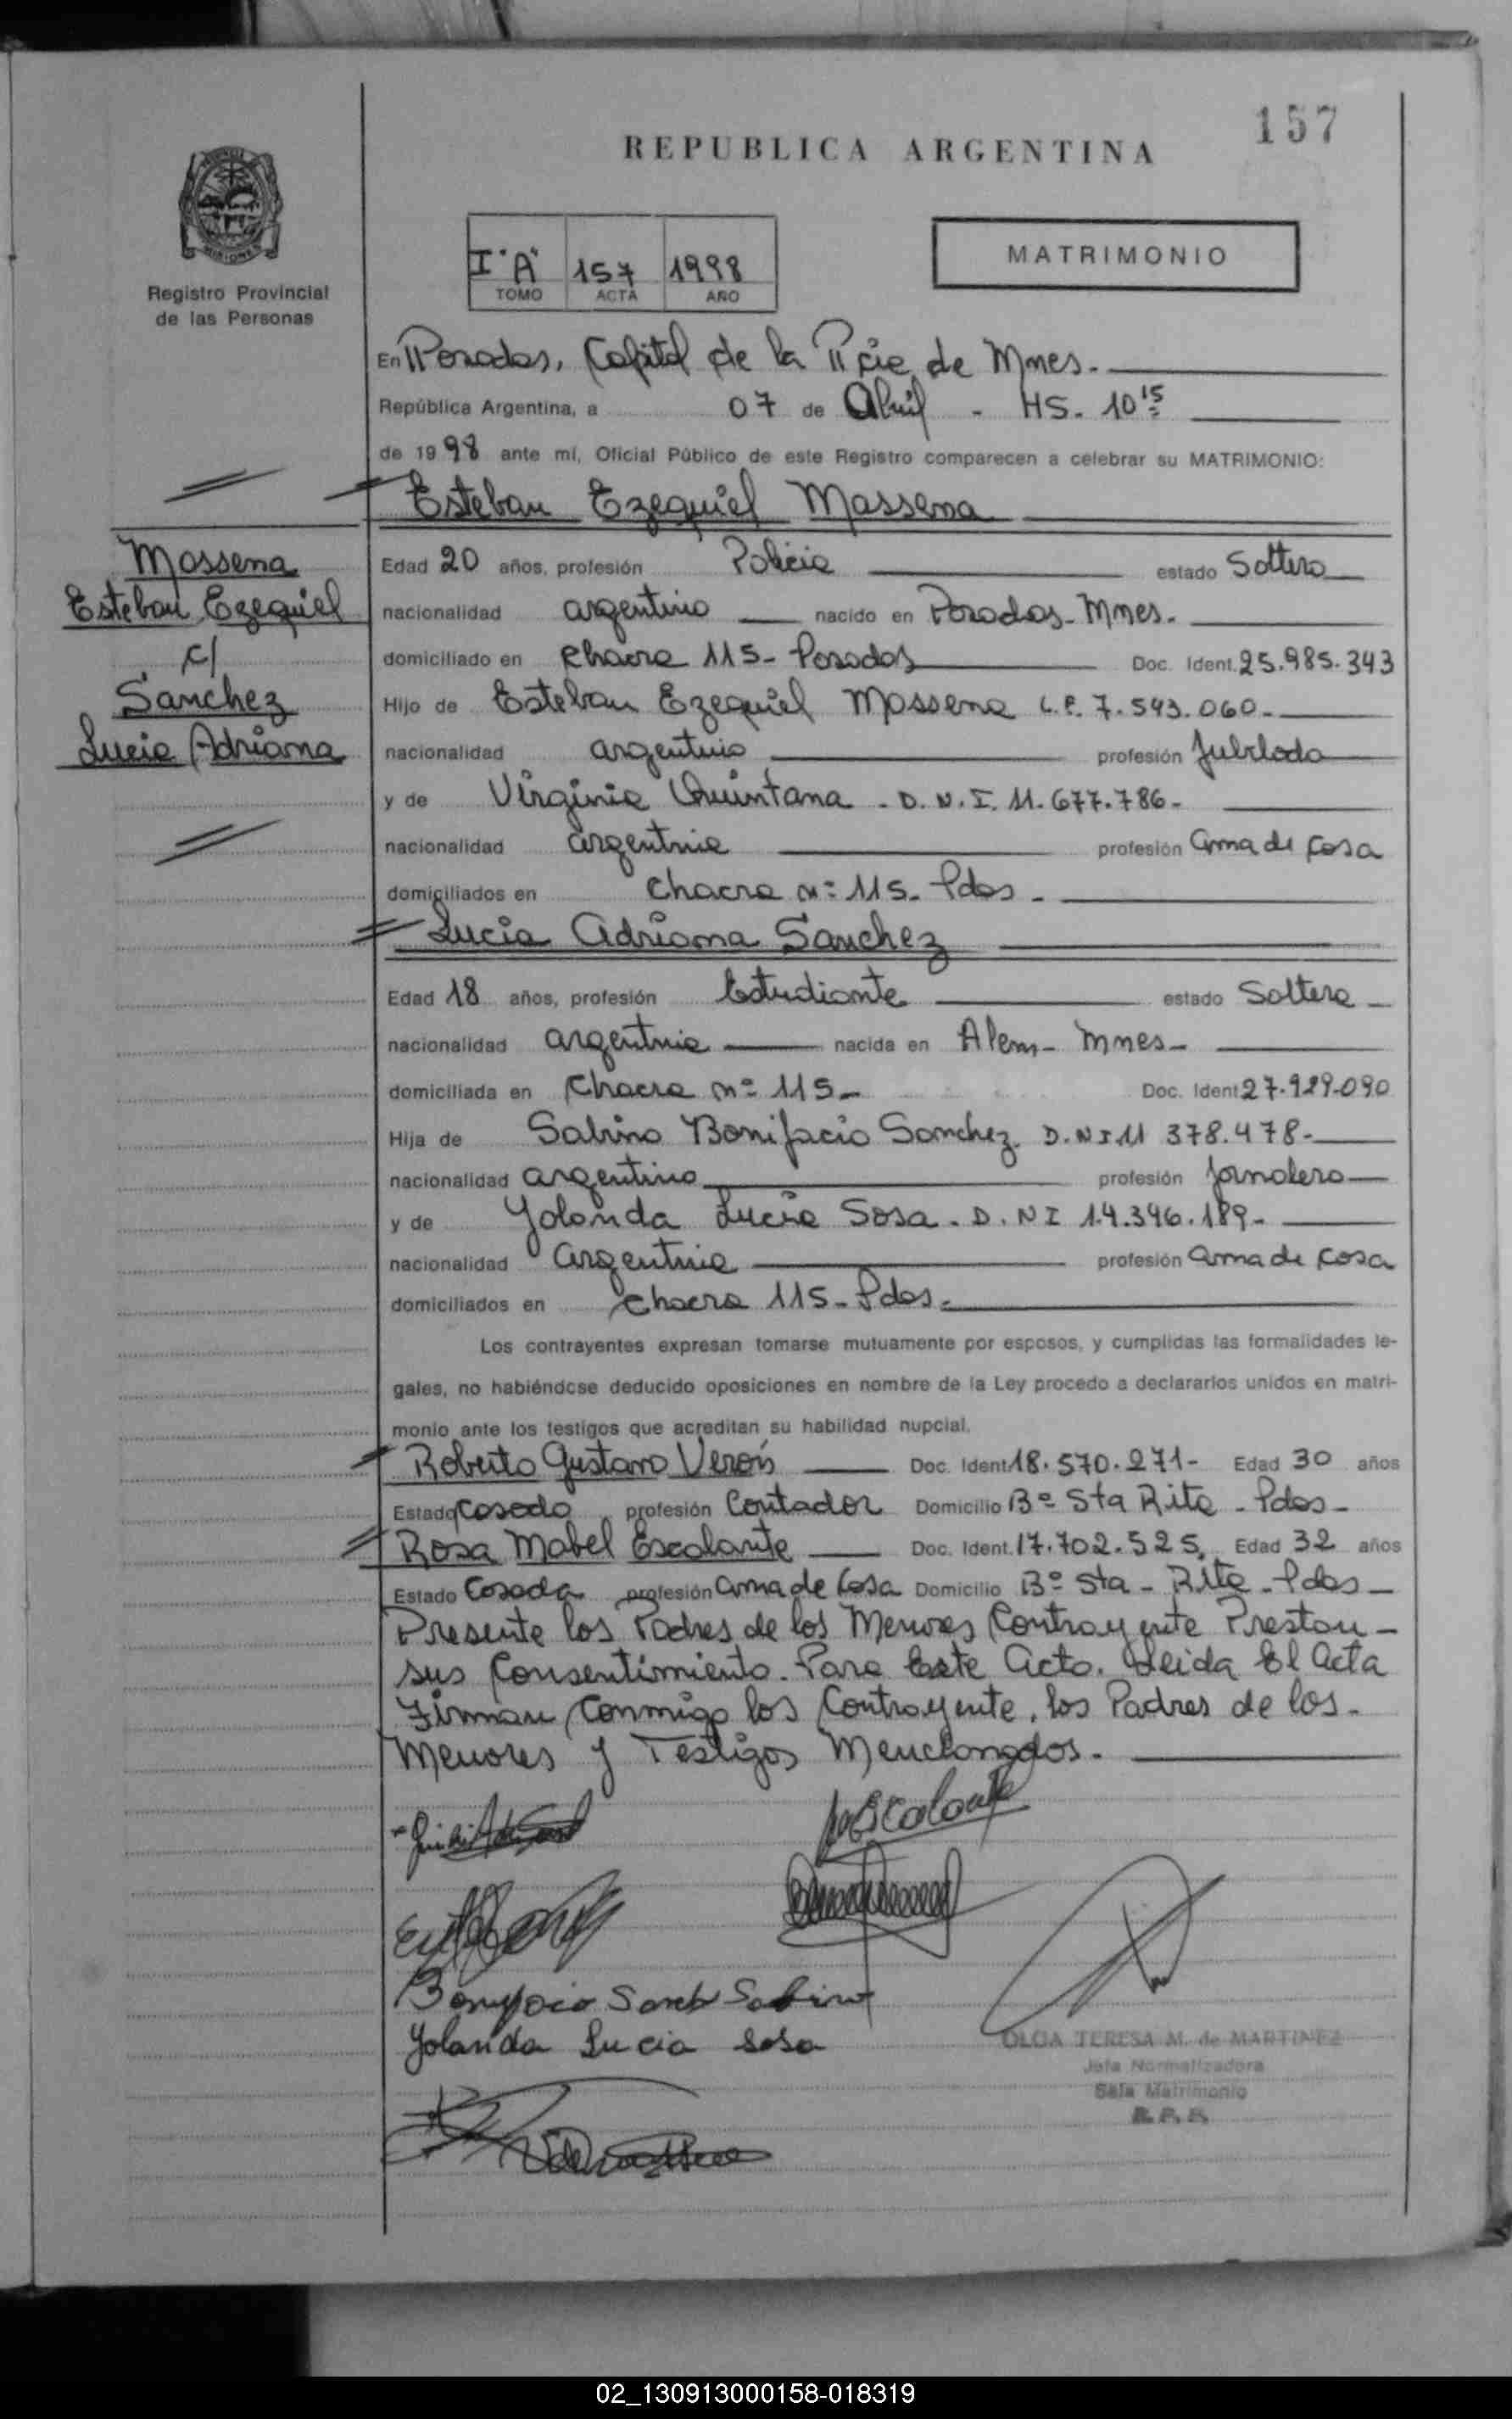 157
REPUBLICA ARGENTINA
MISIONES
Registro Provincial
de las Personas
I "A" 157 1998
TOMO ACTA AÑO
MATRIMONIO
En Posadas, Capital de la Pcie de Mnes.-
República Argentina, a 07 de Abril - HS. 10 15
de 1998 ante mí, Oficial Público de este Registro comparecen a celebrar su MATRIMONIO:
Esteban Ezequiel Massena
Massena
Esteban Ezequiel
c/
Sanchez
Lucia Adriana
Edad 20 años, profesión Policia estado Soltero
nacionalidad argentino nacido en Posadas - Mnes.
domiciliado en Chacra 115 - Posadas Doc. Ident. 25.985.343
Hijo de Esteban Ezequiel Massena L.E. 7.543.060.-
nacionalidad argentino profesión Jubilado
y de Virginia Quintana - D.N.I. 11.677.786-
nacionalidad argentina profesión ama de casa
domiciliados en Chacra nº 115 - Pdas -
Lucia Adriana Sanchez
Edad 18 años, profesión Estudiante estado Soltera
nacionalidad argentina nacida en Alem - Mnes -
domiciliada en Chacra nº 115 - Doc. Ident 27.929.090
Hija de Sabino Bonifacio Sanchez D.N.I 11 378.478-
nacionalidad argentino profesión Jornalero
y de Yolanda Lucia Sosa - D.NI 14.396.189-
nacionalidad argentina profesión ama de casa
domiciliados en Chacra 115 - Pdas.
Los contrayentes expresan tomarse mutuamente por esposos, y cumplidas las formalidades le-
gales, no habiéndose deducido oposiciones en nombre de la Ley procedo a declararlos unidos en matri-
monio ante los testigos que acreditan su habilidad nupcial.
Roberto Gustavo Verón Doc. Ident 18.570.271- Edad 30 años
Estado Casado profesión Contador Domicilio Bº Sta Rita - Pdas -
Rosa Mabel Escalante Doc. Ident. 17.702.525 Edad 32 años
Estado Casada profesión ama de Casa Domicilio Bº Sta - Rita - Pdas -
Presente los Padres de los Menores Contrayente Prestan -
sus Consentimiento. Para Este Acto. Leida El Acta
Firman Conmigo los Contrayente, los Padres de los -
Menores y Testigos Mencionados.
Escalante
Bonifacio Sabino
Yolanda Lucia Sosa
OLGA TERESA M. de MARTINEZ
Jefa Normalizadora
Sala Matrimonio
R.P.P.
02_130913000158-018319